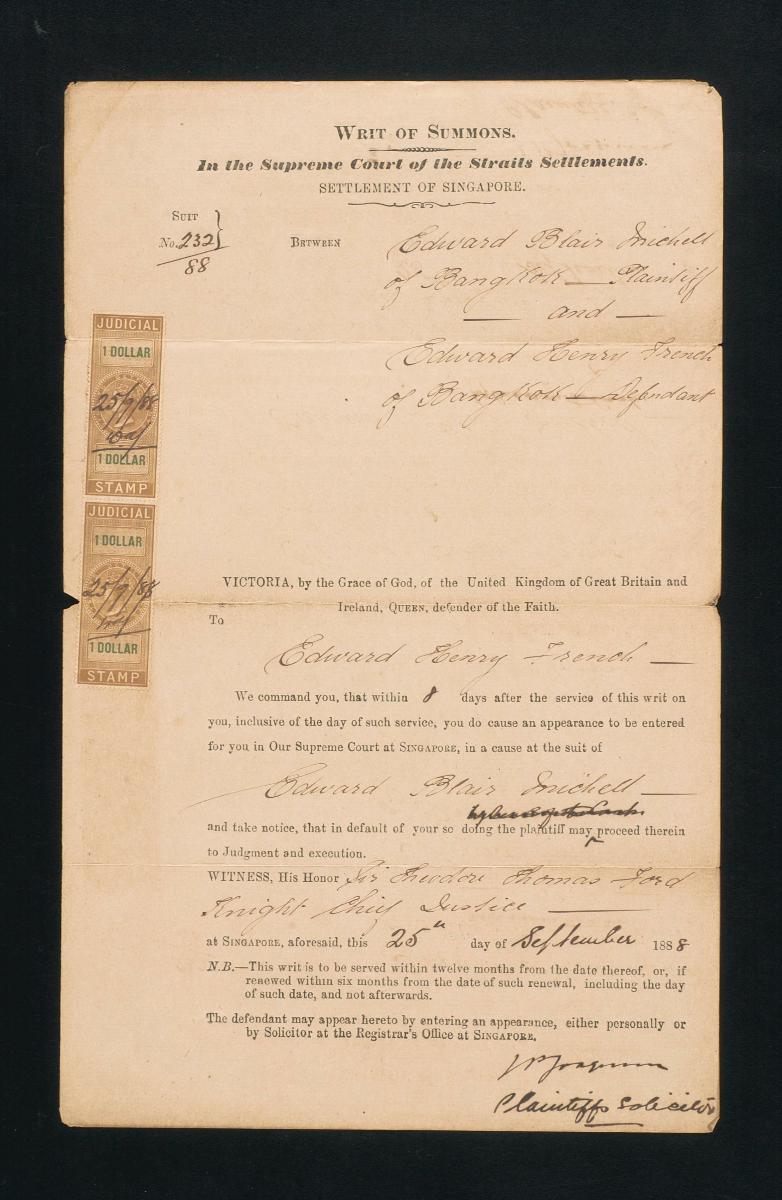 WRIT OF SUMMONS.
In the Supreme Court of the Straits Settlements.
SETTLEMENT OF SINGAPORE.
SUIT
No. 232
88
BETWEEN
Edward Blair Michell
of Bangkok — Plaintiff
— and —
Edward Henry French
of Bangkok — Defendant
JUDICIAL
1 DOLLAR
25/9/88
1 DOLLAR
STAMP
JUDICIAL
1 DOLLAR
25/9/88
1 DOLLAR
STAMP
VICTORIA, by the Grace of God, of the United Kingdom of Great Britain and
Ireland, QUEEN, defender of the Faith.
To
Edward Henry French —
We command you, that within 8 days after the service of this writ on
you, inclusive of the day of such service, you do cause an appearance to be entered
for you in Our Supreme Court at SINGAPORE, in a cause at the suit of
Edward Blair Michell —
and take notice, that in default of your so doing the plaintiff may proceed therein
to Judgment and execution.
WITNESS, His Honor Sir Theodore Thomas Ford
Knight Chief Justice —
at SINGAPORE, aforesaid, this 25th day of September 1888
N.B.—This writ is to be served within twelve months from the date thereof, or, if
renewed within six months from the date of such renewal, including the day
of such date, and not afterwards.
The defendant may appear hereto by entering an appearance, either personally or
by Solicitor at the Registrar's Office at SINGAPORE.
Plaintiffs Solicitor